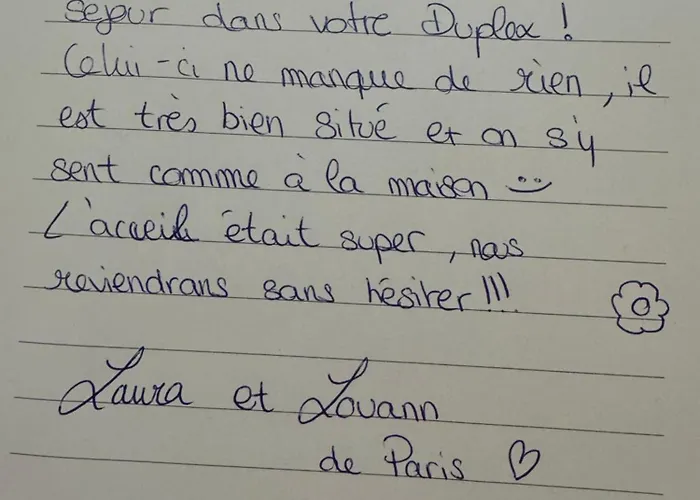 séjour dans votre Duplex !
Celui-ci ne manque de rien, il
est très bien situé et on s'y
sent comme à la maison :)
L'accueil était super, nous
reviendrons sans hésiter !!!
Laura et Louann
de Paris ♡